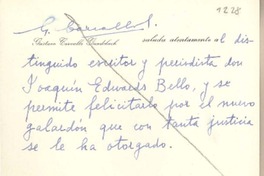 1228
G. Carvallo
Gustavo Carvallo Dundstock saluda atentamente al dis-
tinguido escritor y periodista don
Joaquín Edwards Bello, y se
permite felicitarlo por el nuevo
galardón que con tanta justicia
se le ha otorgado.